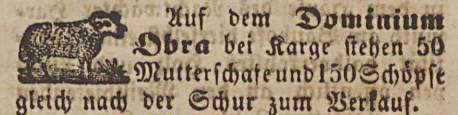 Auf dem Dominium
Obra bei Karge stehen 50
Mutterschafe und 150 Schöpse
gleich nach der Schur zum Verkauf.